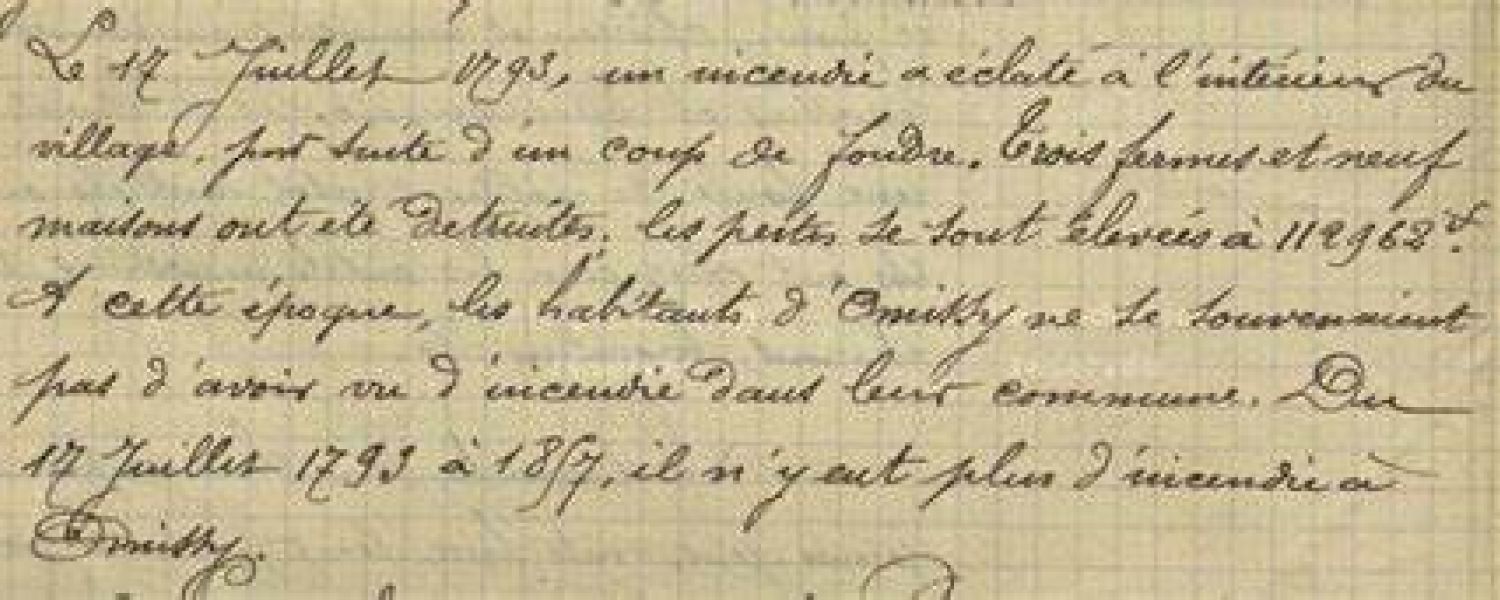 Le 17 Juillet 1793, un incendie a éclaté à l'intérieur du
village, par suite d'un coup de foudre. Trois fermes et neuf
maisons ont été détruites, les pertes se sont élevées à 112962
A cette époque, les habitants d'Omissy ne se souvenaient
pas d'avoir vu d'incendie dans leur commune. Du
17 Juillet 1793 à 1857, il n'y eut plus d'incendie à
Omissy.